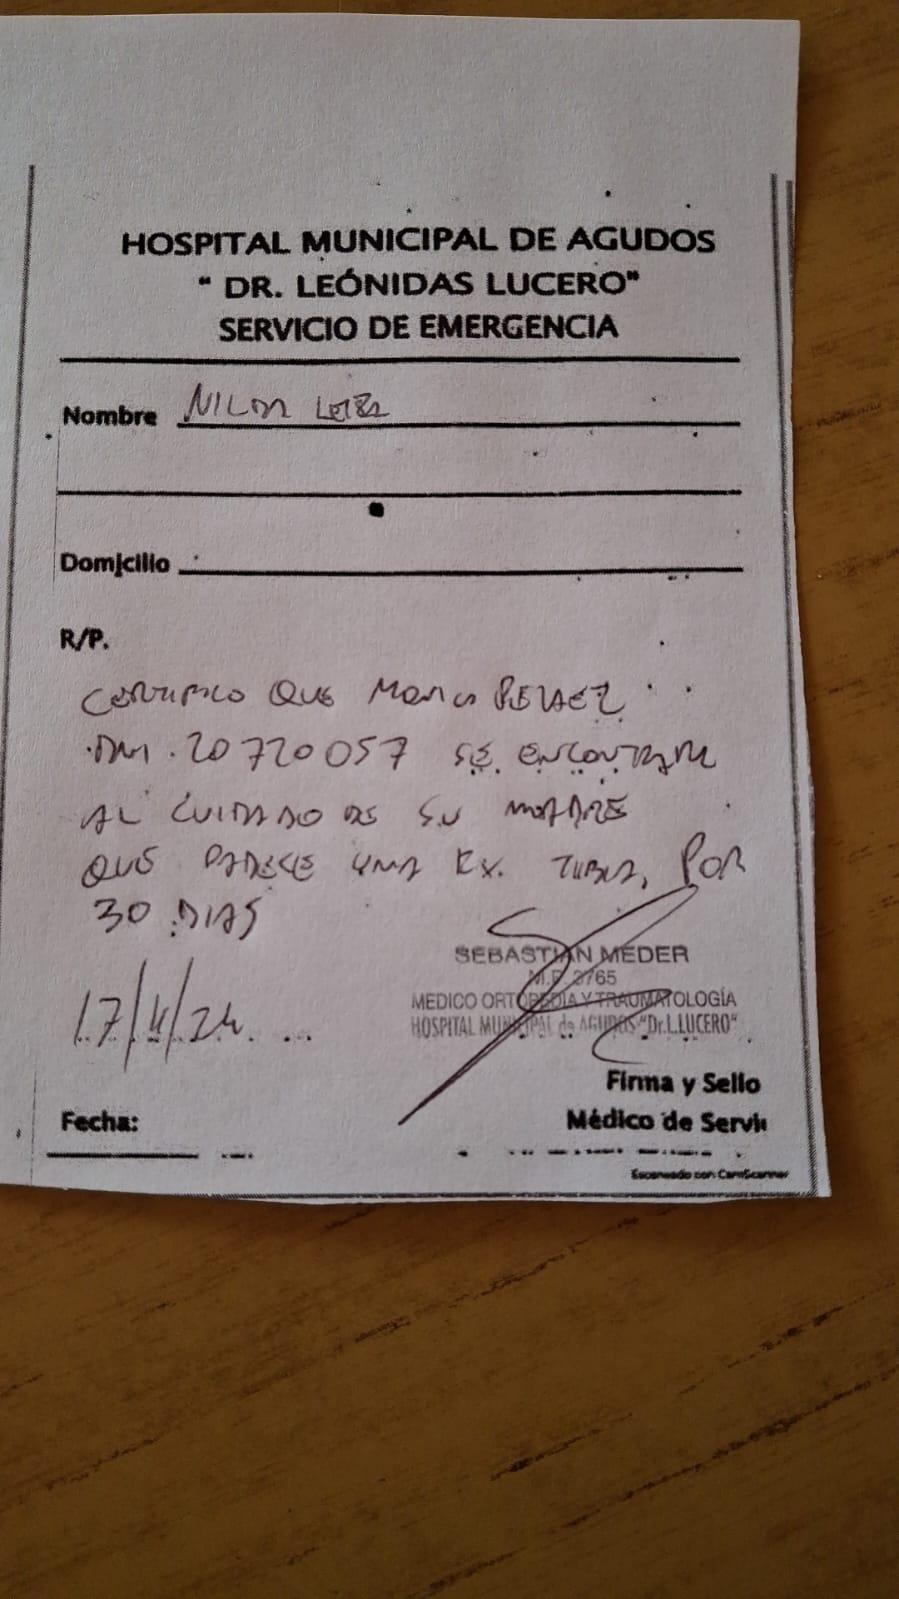 HOSPITAL MUNICIPAL DE AGUDOS
" DR. LEÓNIDAS LUCERO"
SERVICIO DE EMERGENCIA
Nombre NILDA
Domicilio
R/P.
CERTIFICO QUE PELAEZ
DNI. 20720057 SE ENCONTRARA
AL CUIDADO DE SU MADRE
QUE PADECE UNA FX. TIBIA, POR
30 DIAS
SEBASTIAN MEDER
M.P. 3765
MEDICO ORTOPEDIA Y TRAUMATOLOGÍA
HOSPITAL MUNICIPAL de AGUDOS "Dr.L.LUCERO"
17/4/24
Firma y Sello
Fecha:
Médico de Servi
Escaneado con CamScanner